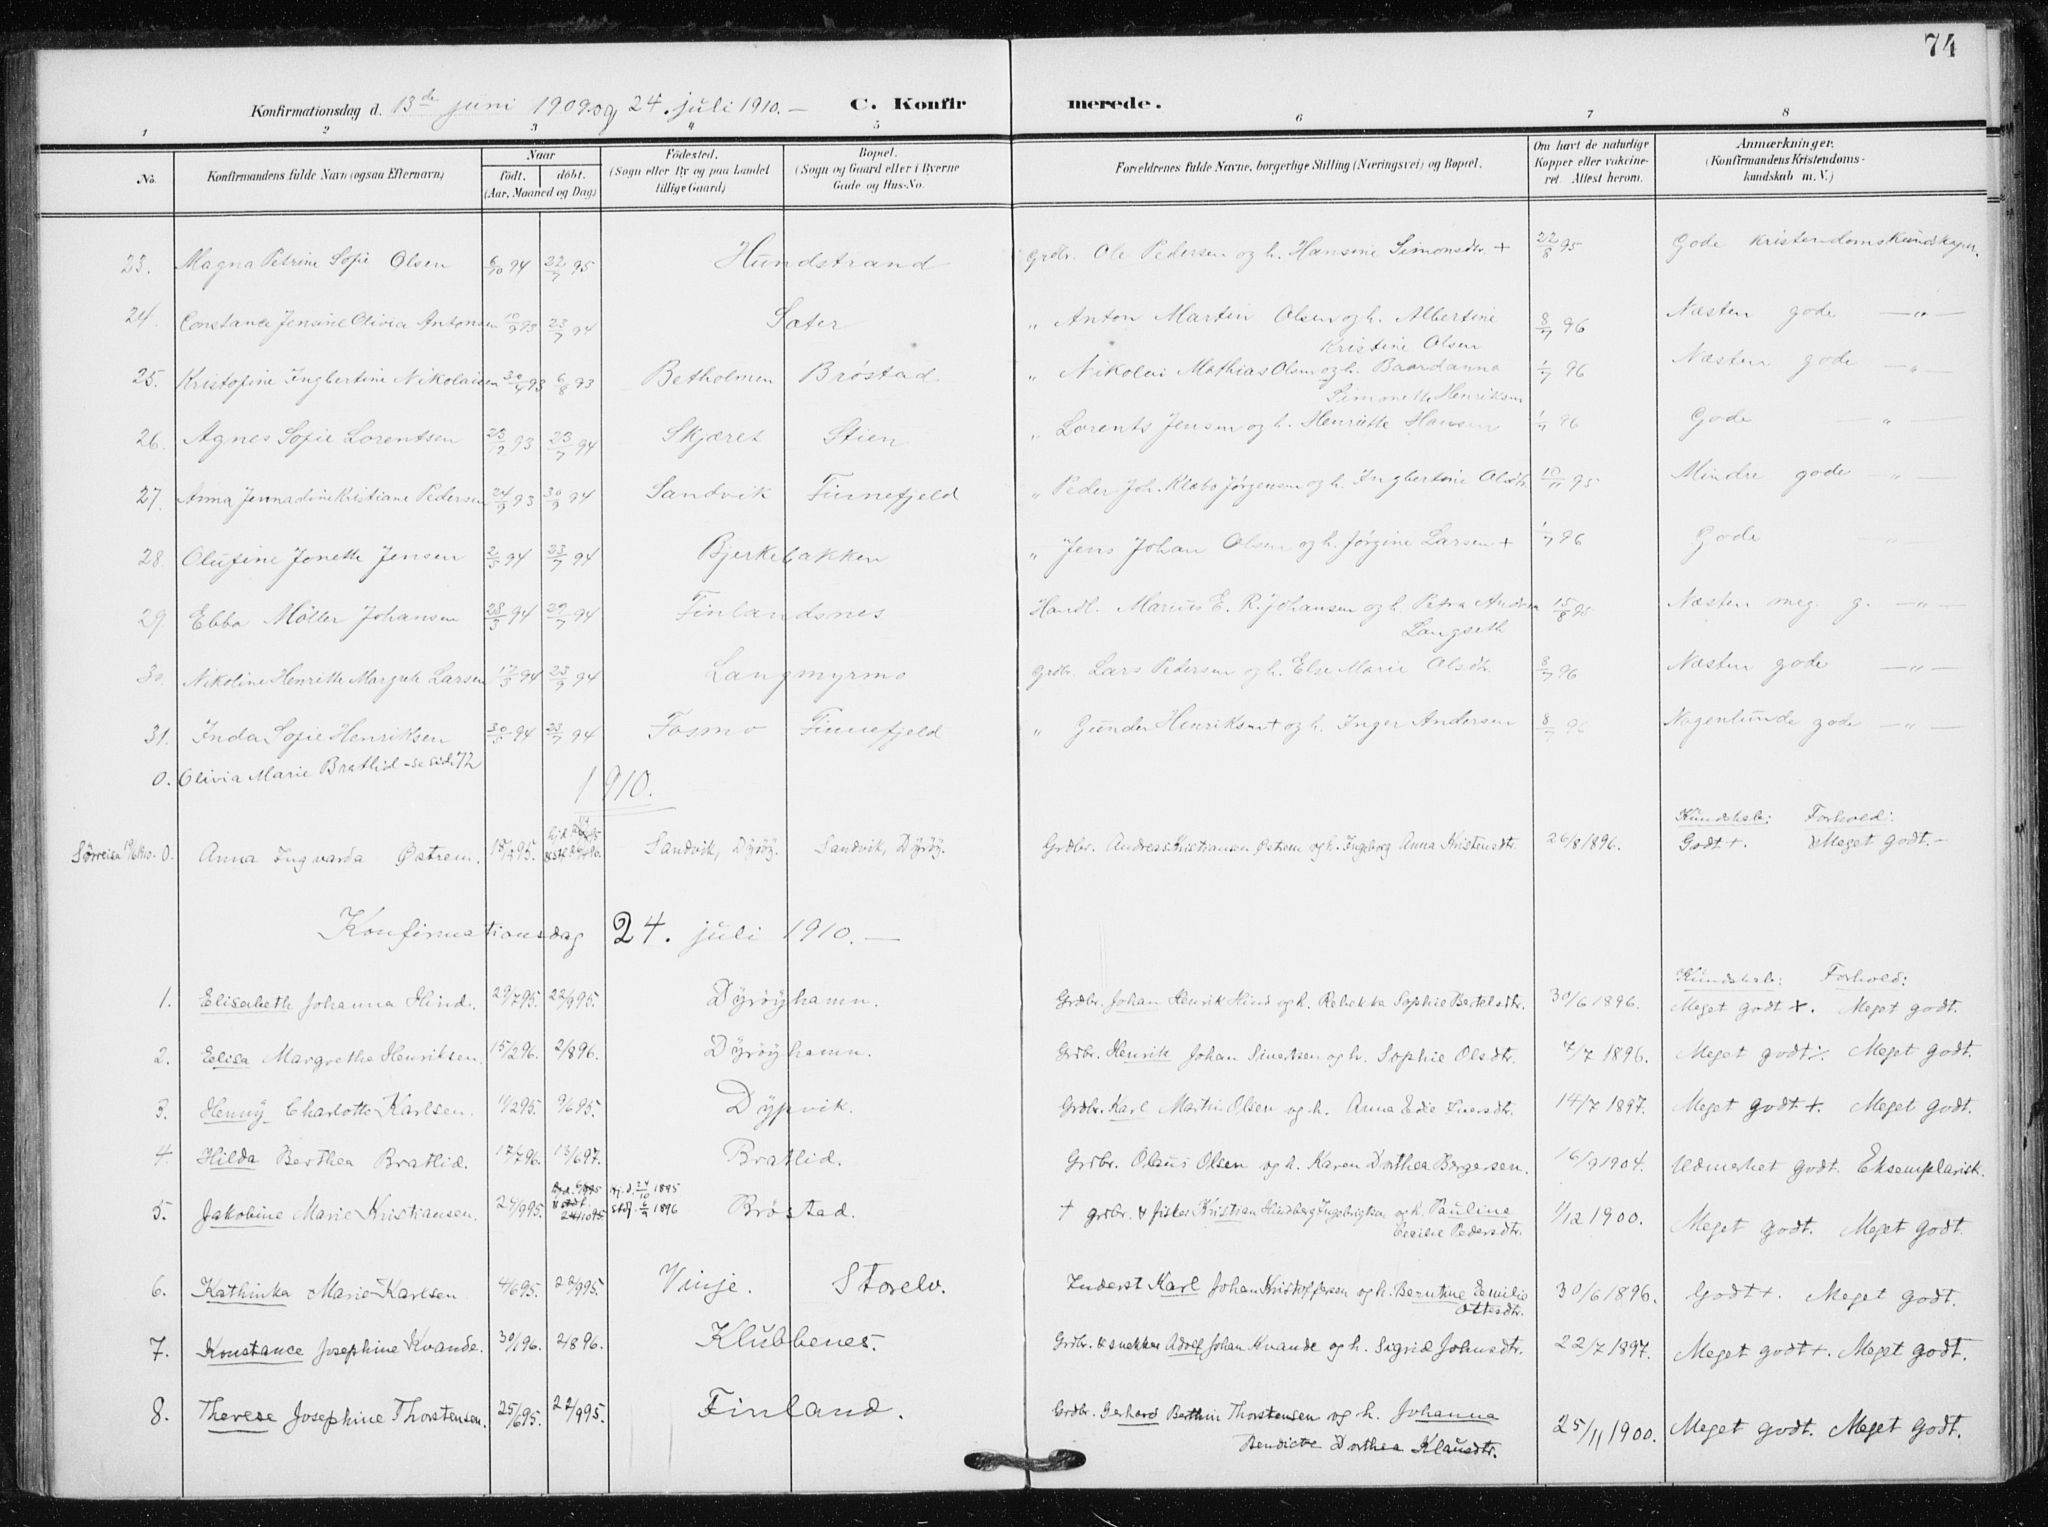 74
Konfirmationsdag d. 13de juni 1909 og 24. juli 1910. — C. Konfirmerede.
1 2 3 4 5 6 7 8
No. Konfirmandens fulde Navn (ogsaa Efternavn) Naar født. døbt. (Aar, Maaned og Dag) Fødested. (Sogn eller By og paa Landet tillige Gaard) Bopæl. (Sogn og Gaard eller i Byerne Gade og Hus-No. Forældrenes fulde Navne, borgerlige Stilling (Næringsvei) og Bopæl. Om havt de naturlige Kopper eller vakcineret. Attest herom. Anmærkninger. (Konfirmandens Kristendomskundskab m. V.)
23. Magna Petrine Sofie Olsen 6/10 94 22/7 95 Hundstrand Grdbr. Ole Pedersen og h. Hansine Simonsdtr. + 22/8 95 Gode Kristendomskundskaper.
24. Constance Jensine Olivia Antonsen 10/9 93 23/7 94 Sæter " Anton Martin Olsen og h. Albertine Kristine Olsen 8/7 96 Næsten gode — " —
25. Kristofine Ingbertine Nikolaisen 30/4 93 6/8 93 Betholmen Brøstad " Nikolai Mathias Olsen og h. Baardanna Simonette Henriksen 1/7 96 Næsten gode — " —
26. Agnes Sofie Lorentsen 25/12 93 23/7 94 Skjæret Stien " Lorents Jensen og h. Henriette Hansen 1/7 96 Gode — " —
27. Anna Jennadine Kristiane Pedersen 24/9 93 30/9 94 Sandvik Finnefjeld " Peder Joh. Klæbo Jørgensen og h. Ingbertine Olsdtr. 10/11 95 Mindre gode — " —
28. Olufine Jonette Jensen 2/5 94 23/7 94 Bjerkebakken " Jens Johan Olsen og h. Jørgine Larsen + 1/7 96 Gode — " —
29. Ebba Møller Johansen 28/3 94 29/7 94 Finlandsnes Handl. Marius E. R. Johansen og h. Petra Andrea Langseth 15/8 95 Næsten meg. g. — " —
30. Nikoline Henriette Margrete Larsen 17/5 94 23/9 94 Langmyrmo Grdbr. Lars Pedersen og h. Else Marie Olsdtr. 8/7 96 Næsten gode — " —
31. Inda Sofie Henriksen 30/5 94 23/7 94 Fosmo Finnefjeld " Gunder Henriksen + og h. Inger Andersen 8/7 96 Nogenlunde gode — " —
0. Olivia Marie Bratlid - se side 72
1910.
Kundskab: Forhold:
Sørreisa 0. Anna Ingvarda Østrem. Sandvik, Dyrøy. Sandvik, Dyrøy. Grdbr. Andreas Kristiansen Østrem og h. Ingeborg Anna Kristensdtr. 26/8 1896. Godt +. Meget godt. —
Konfirmationsdag 24. juli 1910. —
Kundskab: Forhold:
1. Elisabeth Johanna Hind. 29/7 95. 22/9 95. Dyrøyhamn. Grdbr. Johan Henrik Hind og h. Rebekka Sophie Bertelsdtr. 30/6 1896. Meget godt +. Meget godt.
2. Elisa Margrethe Henriksen. 15/2 96. 2/8 96. Dyrøyhamn. Grdbr. Henrik Johan Simentsen og h. Sophie Olsdtr. 7/7 1896. Meget godt %. Meget godt.
3. Henny Charlotte Karlsen. 11/2 95. 9/6 95. Dypvik. Grdbr. Karl Martin Olsen og h. Anna Edie Iversdtr. 14/7 1897. Meget godt +. Meget godt.
4. Hilda Berthea Bratlid. 17/7 96. 13/6 97. Bratlid. Grdbr. Olaus Olsen og h. Karen Dorthea Borgersen. 16/9 1904. Udmerket godt. Eksemplarisk.
5. Jakobine Marie Kristiansen. 24/9 95. hj.d. 24/10 1895 stdf. 6/9 1896 Brøstad. † grdbr. & fisker Kristian Hindberg Ingebrigtsen og h. Pauline Cecilie Pedersdtr. 1/12 1900. Meget godt. Meget godt.
6. Kathinka Marie Karlsen. 4/6 95. 22/9 95. Vinje. Storelv. Inderst Karl Johan Kristoffersen og h. Berntine Emilie Ottesdtr. 30/6 1896. Godt +. Meget godt.
7. Konstance Josephine Kvande. 30/1 96. 2/8 96. Klubbenes. Grdbr. & snekker Adolf Johan Kvande og h. Sigrid Johnsdtr. 22/7 1897. Meget godt +. Meget godt.
8. Therese Josephine Thorstensen. 25/6 95. 22/9 95. Finland. Grdbr. Gerhard Berthin Thorstensen og h. Johanna Bendicte Dorthea Klausdtr. 25/11 1900. Meget godt. Meget godt.